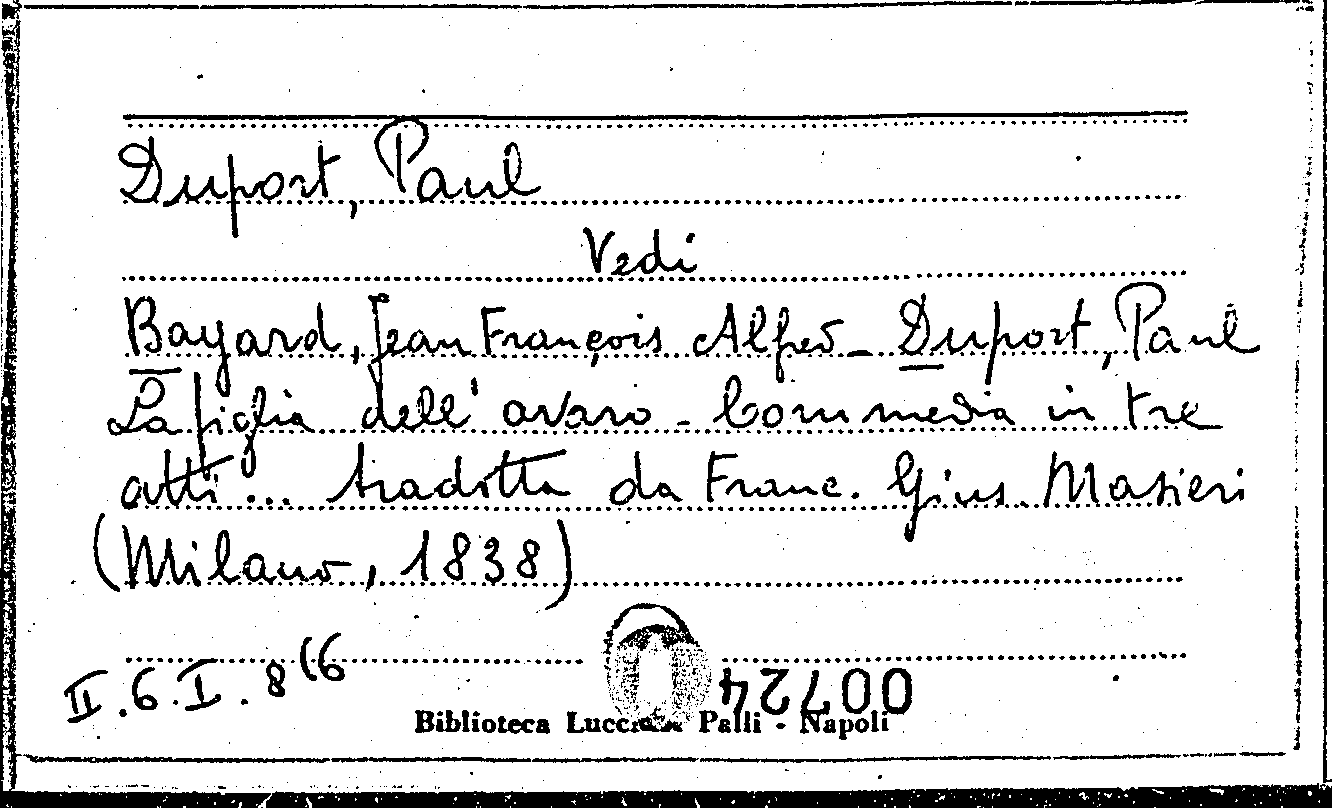 Duport, Paul
Vedi
Bayard, Jean François Alfred - Duport, Paul
La figlia dell'avaro - Commedia in tre
atti... tradotta da Franc. Gius. Masieri
(Milano, 1838)
II.6.I.8(6
00724
Biblioteca Palli - Napoli